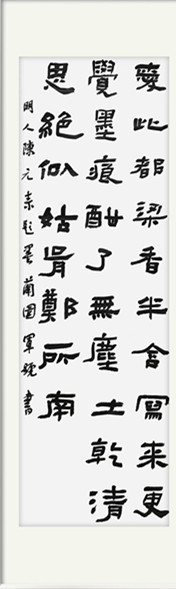 愛此都梁香半含寫來更
覺墨痕酣了無塵土乾清
思絕似姑胥鄭所南
明人陳元素題墨蘭圖 書